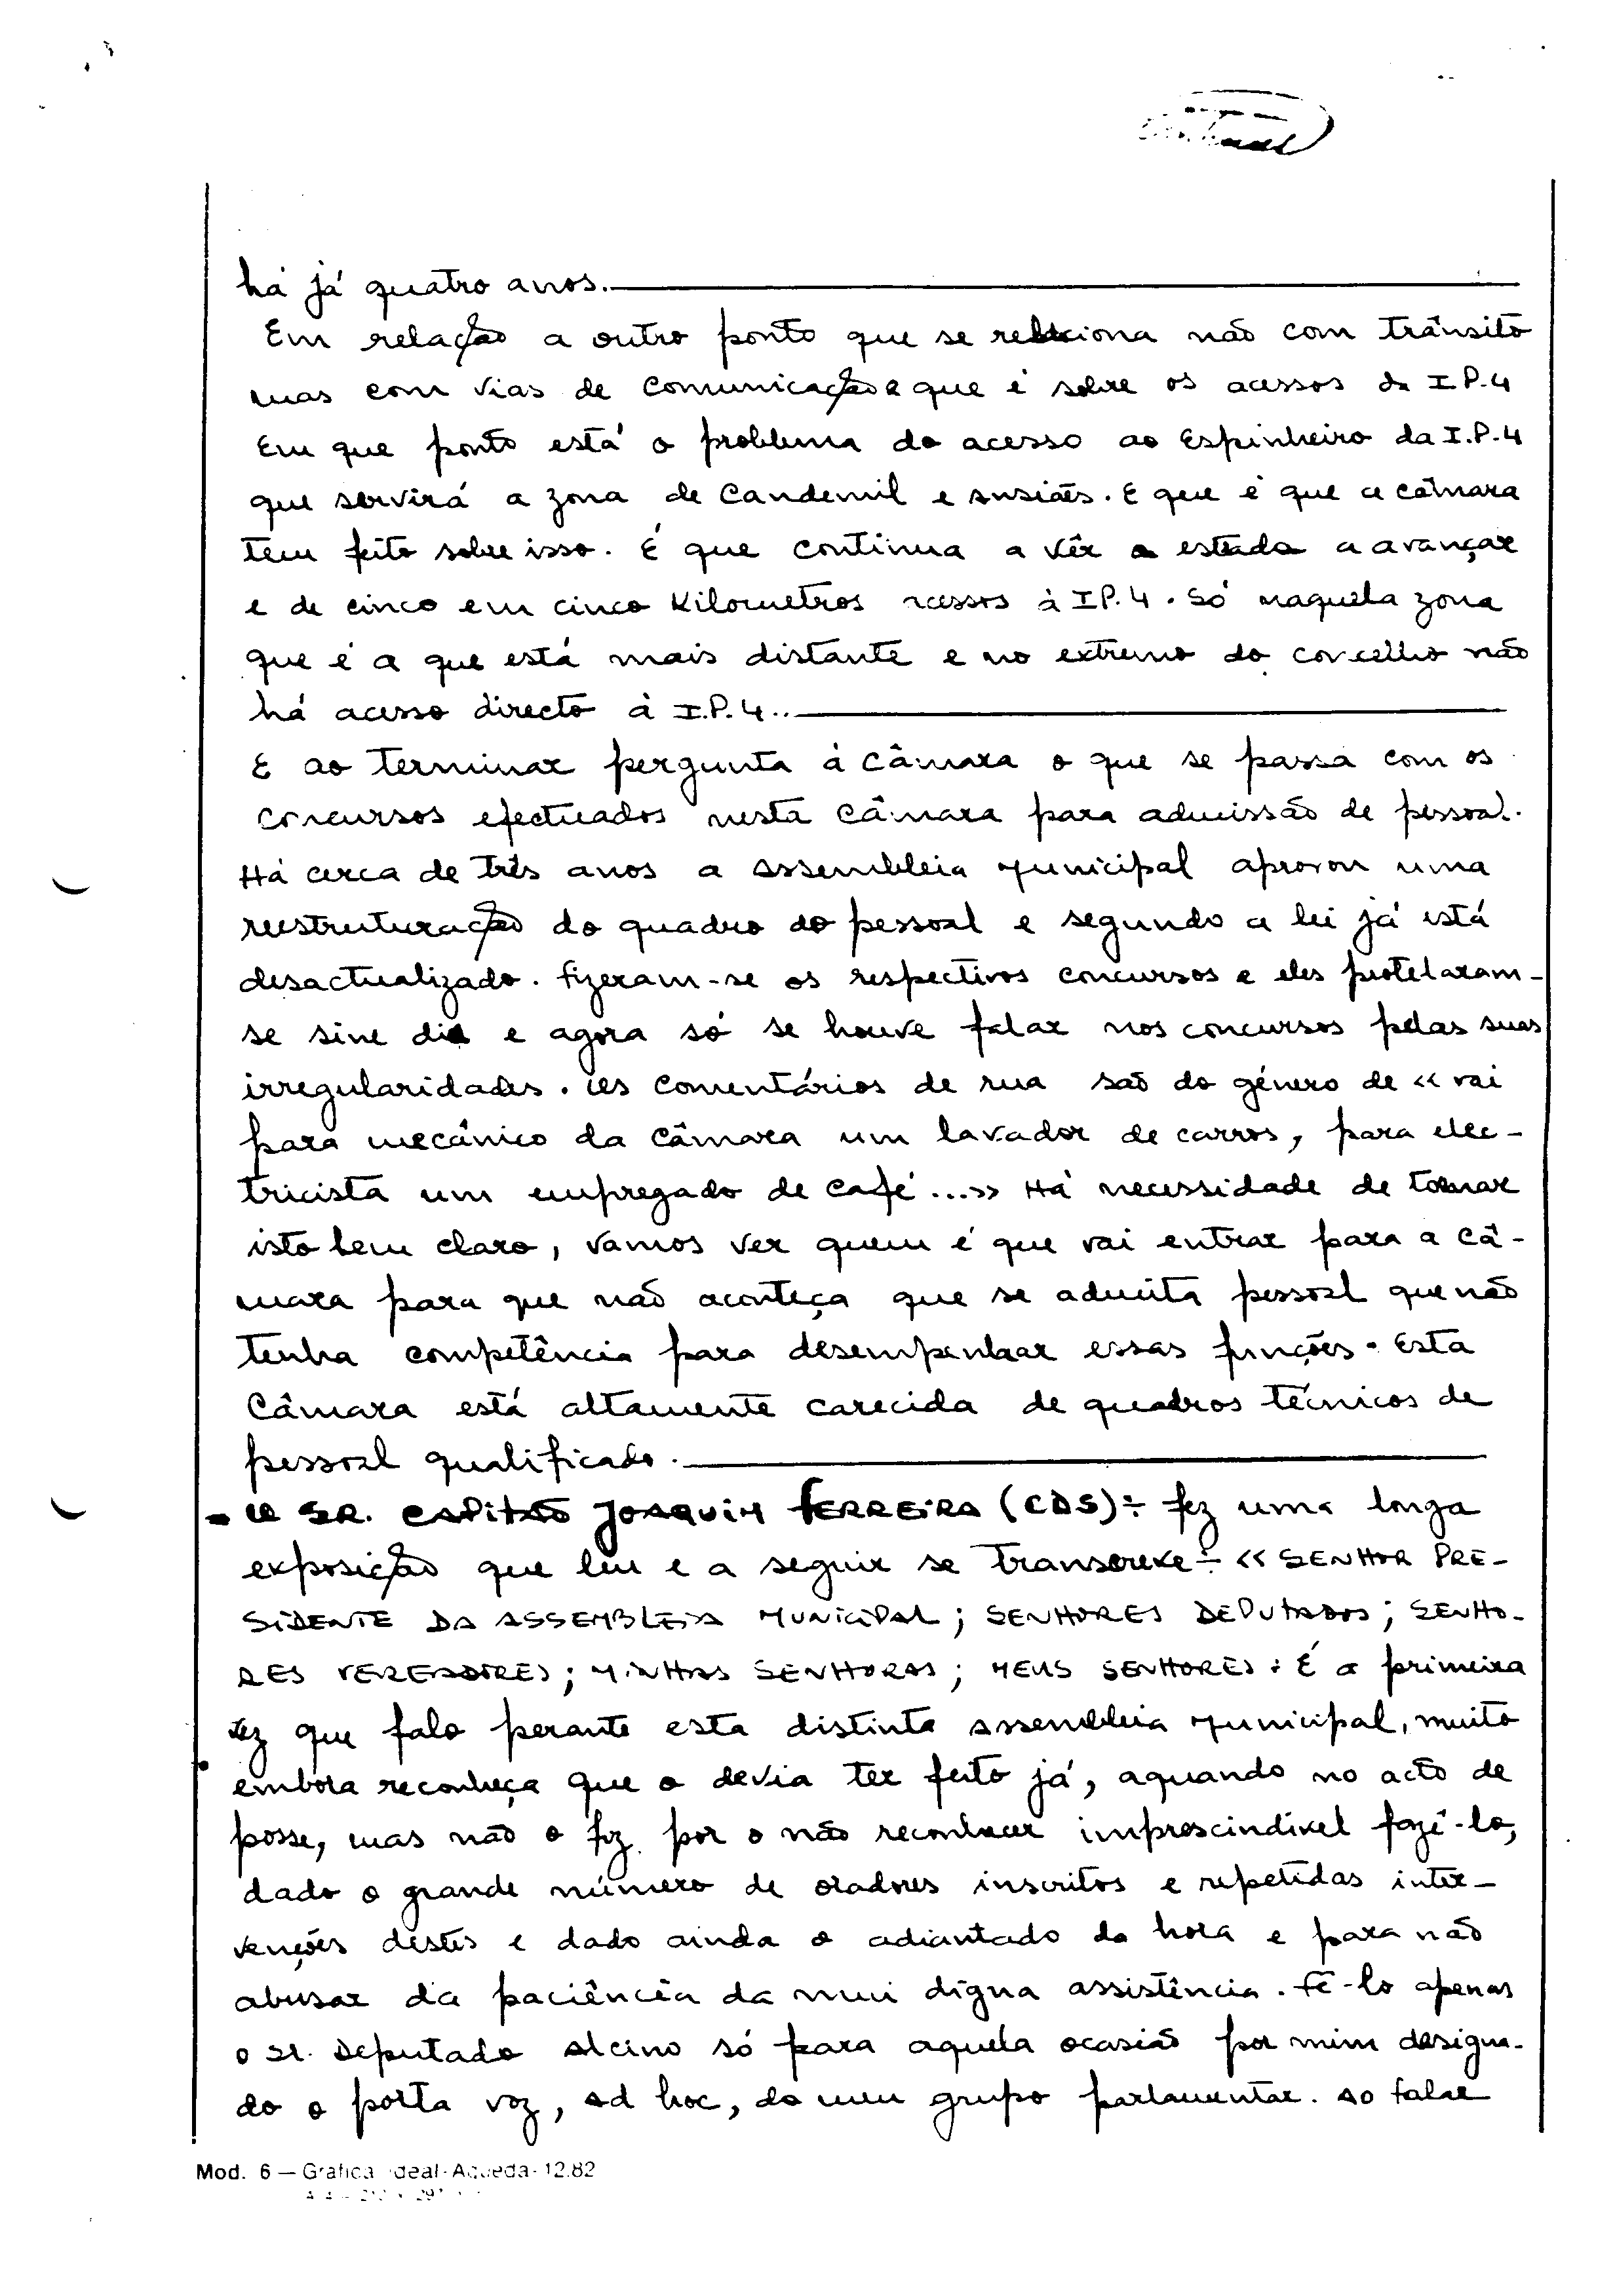 há já quatro anos.
Em relação a outro ponto que se relaciona não com trânsito
mas com vias de comunicação e que é sobre os acessos da I.P.4
Em que ponto está o problema do acesso ao Espinheiro da I.P.4
que servirá a zona de Candemil e Ansiães. E que é que a câmara
tem feito sobre isso. É que continua a vêr a estrada a avançar
e de cinco em cinco Kilometros acessos à IP.4. Só naquela zona
que é a que está mais distante e no extremo do concelho não
há acesso directo à I.P.4..
E ao terminar pergunta à Câmara o que se passa com os
concursos efectuados nesta Câmara para admissão de pessoal.
Há cerca de três anos a Assembleia Municipal aprovou uma
reestruturação do quadro do pessoal e segundo a lei já está
desactualizado. Fizeram-se os respectivos concursos e eles protelaram-
se sine die e agora só se houve falar nos concursos pelas suas
irregularidades. Os comentários de rua são do género de «vai
para mecânico da Câmara um lavador de carros, para elec-
tricista um empregado de café...» Há necessidade de tornar
isto bem claro, vamos ver quem é que vai entrar para a Câ-
mara para que não aconteça que se admita pessoal que não
tenha competência para desempenhar essas funções. Esta
Câmara está altamente carecida de quadros técnicos de
pessoal qualificado.
- O SR. CAPITÃO JOAQUIM FERREIRA (CDS)÷ fez uma longa
exposição que leu e a seguir se transcreve÷ «SENHOR PRE-
SIDENTE DA ASSEMBLEIA MUNICIPAL; SENHORES DEPUTADOS; SENHO-
RES VEREADORES; MINHAS SENHORAS; MEUS SENHORES: É a primeira
vez que falo perante esta distinta Assembleia Municipal, muito
embora reconheça que o devia ter feito já, aquando no acto de
posse, mas não o fiz por o não reconhecer imprescindível fazê-lo,
dado o grande número de oradores inscritos e repetidas inter-
venções destes e dado ainda o adiantado da hora e para não
abusar da paciência da mui digna assistência. Fê-lo apenas
o Sr. Deputado Alcino só para aquela ocasião por mim designa-
do o porta voz, ad hoc, do meu grupo parlamentar. Ao falar
Mod. 6 — Gráfica Ideal-Agueda-12.82